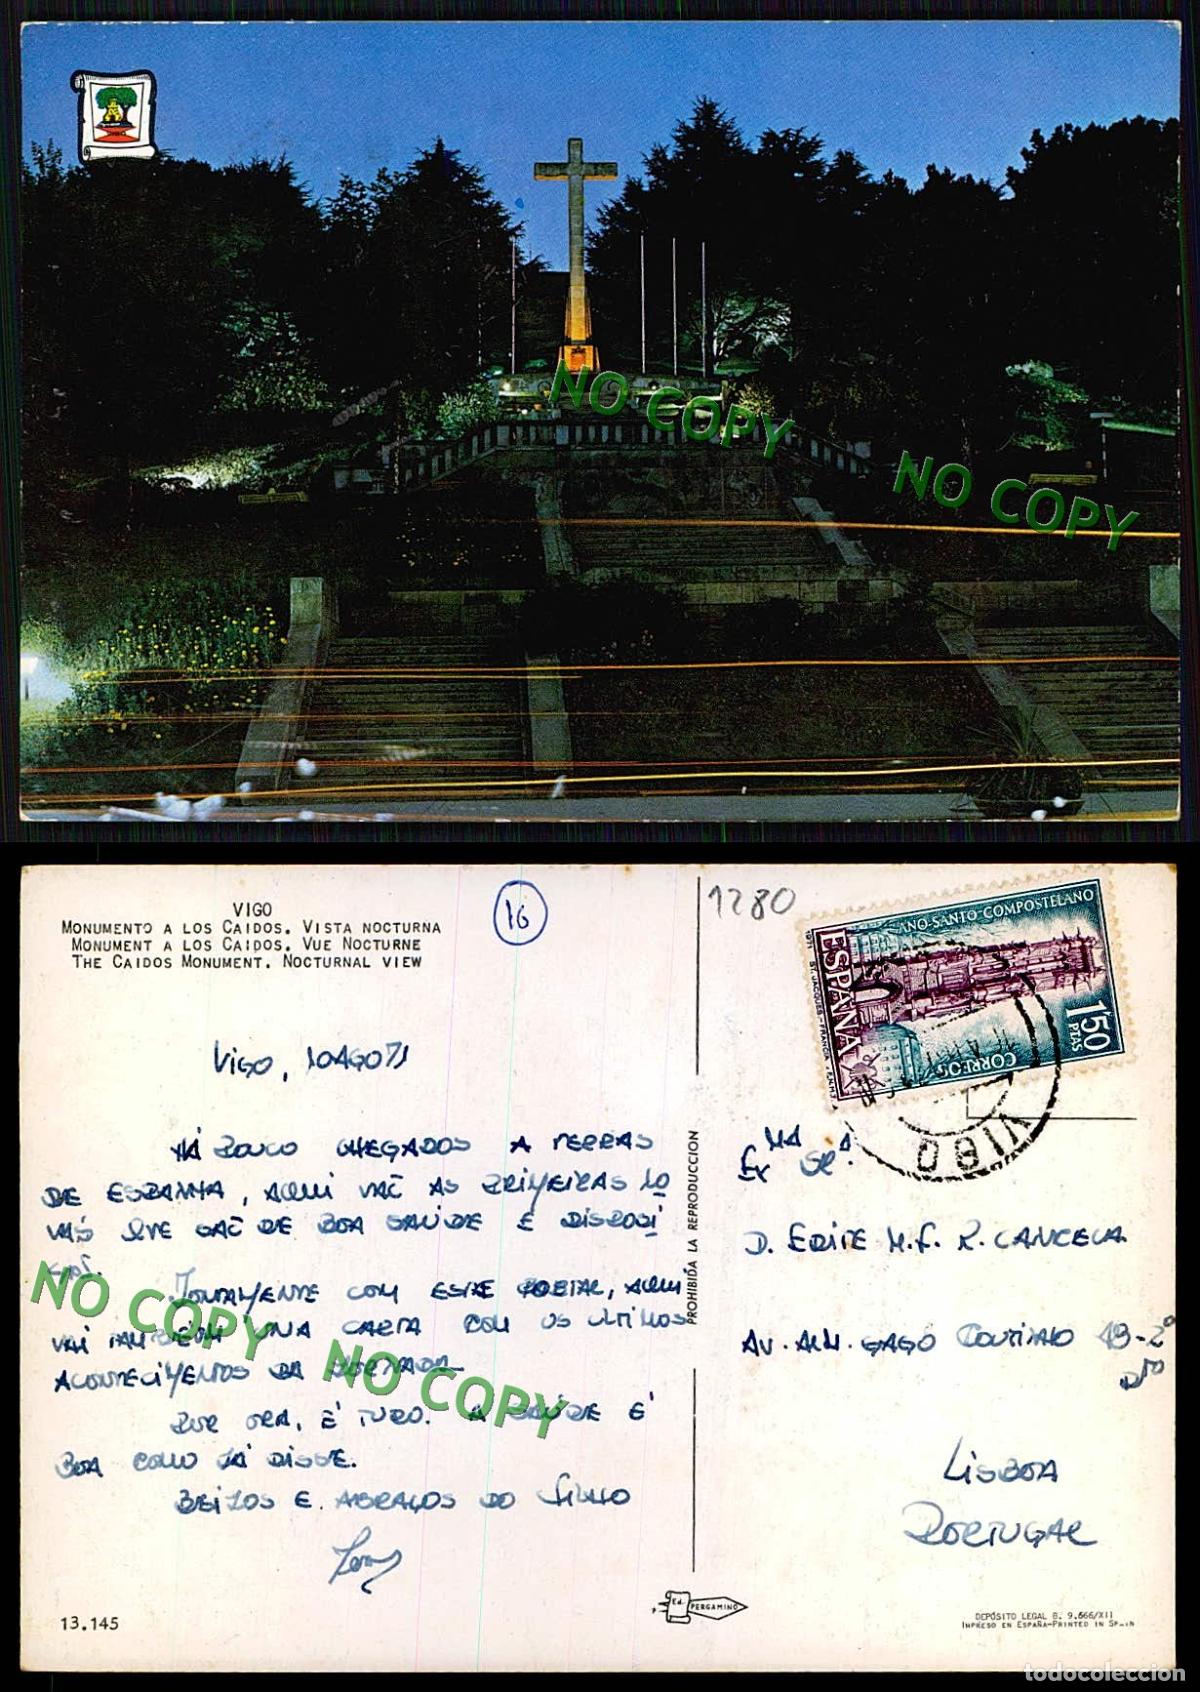 NO COPY
NO COPY
VIGO
MONUMENTO A LOS CAIDOS. VISTA NOCTURNA
MONUMENT A LOS CAIDOS. VUE NOCTURNE
THE CAIDOS MONUMENT. NOCTURNAL VIEW
16
1280
AÑO-SANTO COMPOSTELANO
1971
ST. JACQUES-FRANCIA
F.N.M.T.
ESPAÑA
1'50 PTAS
CORREOS
VIGO
VIGO, 10AGO71
HÁ POUCO CHEGADOS A TERRAS
DE ESPANHA, AQUI VAĒ AS PRIMEIRAS NO
QUE SAĒ DE BOA SAÚDE E DISPOSI
JUNTAMENTE COM ESTE POSTAL, AQUI
VAI TAMBÉM UMA CARTA COM OS ULTIMOS
ACONTECIMENTOS DA JORNADA
POR ORA, É TUDO. A SAÚDE É
BOA COMO JÁ DISSE.
BEIJOS E ABRAÇOS DO FILHO
NO COPY
NO COPY
PROHIBIDA LA REPRODUCCION
EXMA SRA.
D. EDITE M. F. R. CANCELA
AV. ALM. GAGO COUTINHO 19-2º
DTO
LISBOA
PORTUGAL
13.145
Ed. PERGAMINO
DEPÓSITO LEGAL B. 9.666/XII
IMPRESO EN ESPAÑA-PRINTED IN SPAIN
todocoleccion